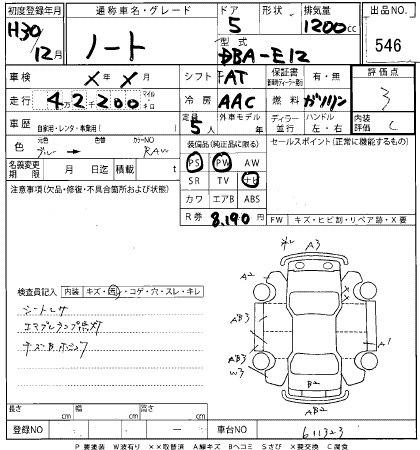 初度登録年月 通称車名・グレード ドア 形状 排気量 出品NO.
H30/12月 ノート 5 1200cc 546
型式 DBA-E12
車検 × 年 × 月 シフト FAT 保証書 有・無 評価点
走行 4万2千200 マイル キロ 冷房 AAC 燃料 ガソリン 3
車歴 自家用・レンタ・事業用( ) 定員 5人 外車モデル 年 ディーラー 並行 ハンドル 左・右 内装評価 C
色 元色 ブルー → 色替 カラーNO RAW 装備品(純正品に限る) セールスポイント(正常に機能するもの)
名義変更期限 月 日迄 積載 t PS PW AW
SR TV ナビ
注意事項(欠品・修復・不具合箇所および状態) カワ エアB ABS
R券 8,190円 FW キズ・ヒビ割・リペア跡・X要
A3
A2
AB3
検査員記入 内装 キズ・凹・コゲ・穴・スレ・キレ
シートレサ
エアBランプ点灯
AB3 A1
W3
B2
AB2
長さ cm 幅 cm 高さ cm
登録NO - 車台NO 611323
P 要塗装 W波有り ××取替済 A線キズ Bヘコミ Sさび X要交換 C腐食